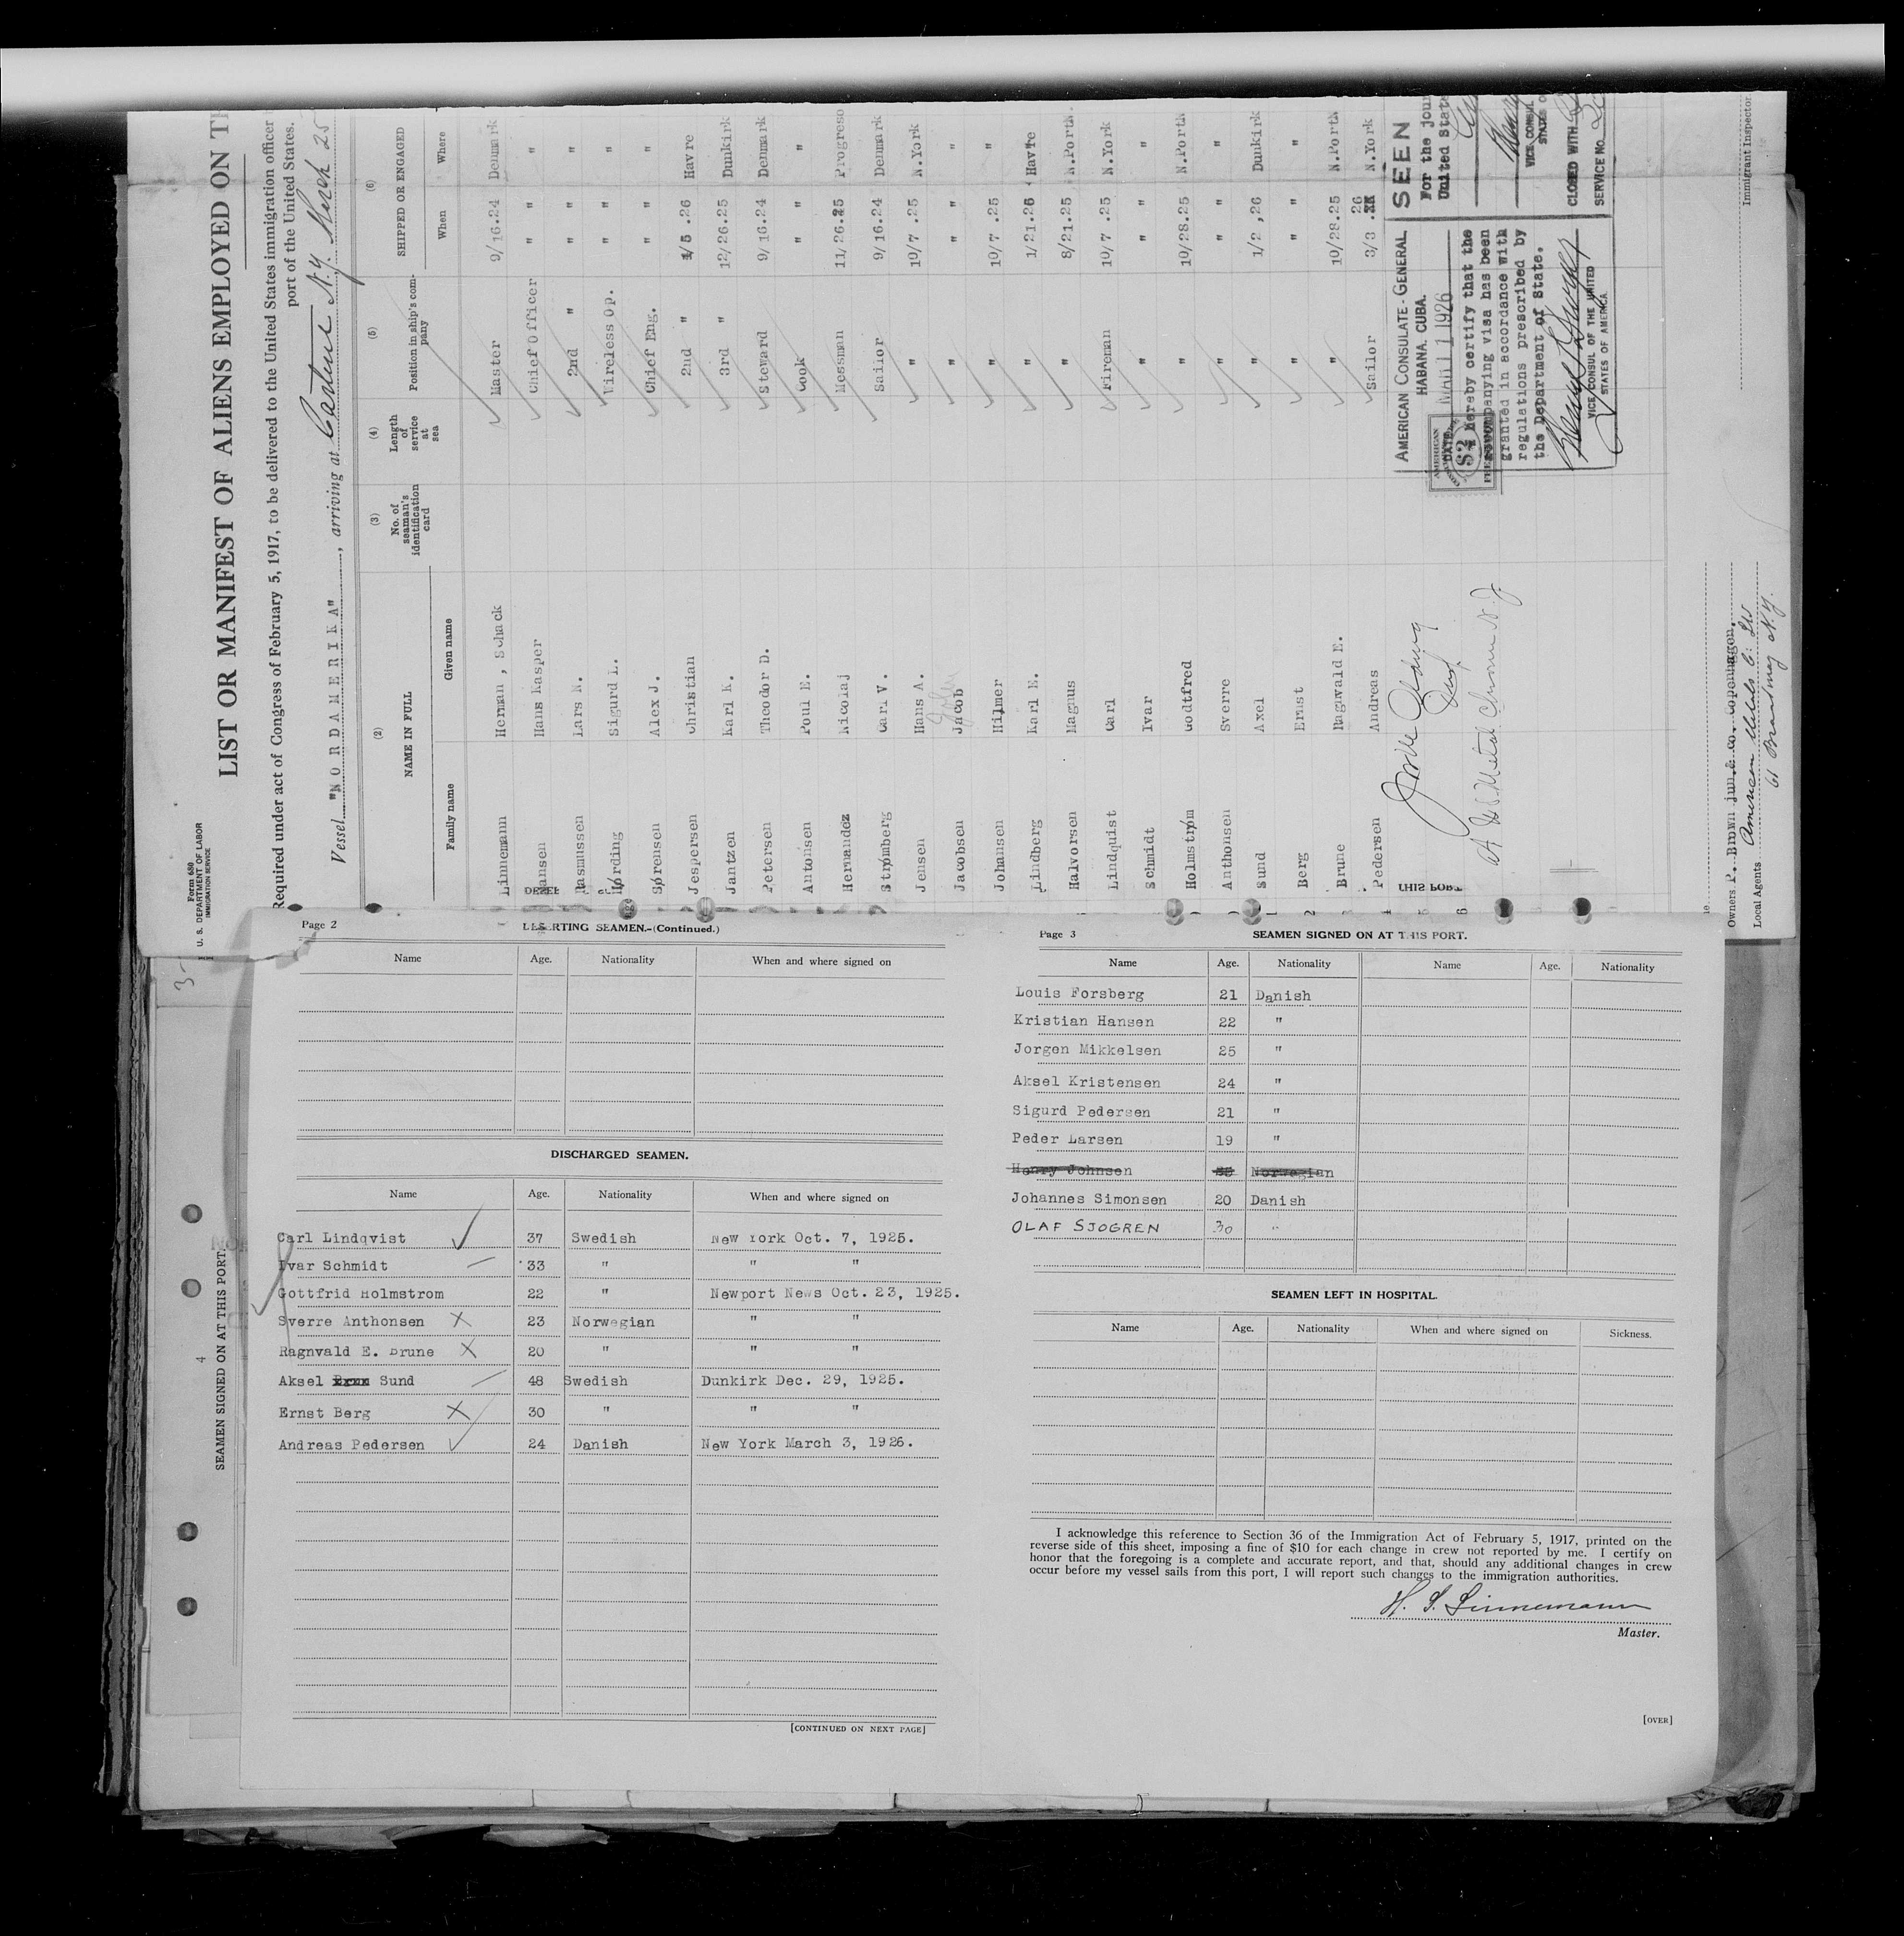 Form 680
U. S. DEPARTMENT OF LABOR
IMMIGRATION SERVICE
LIST OR MANIFEST OF ALIENS EMPLOYED ON
Required under act of Congress of February 5, 1917, to be delivered to the United States immigration officer
port of the United States.
Vessel "NORDAMERIKA", arriving at N.Y. March 25
(2) (3) (4) (5) (6)
NAME IN FULL No. of seaman's identification card Length of service at sea Position in ship's company SHIPPED OR ENGAGED
Family name Given name When Where
Linnemann Herman, Schack Master 9/16.24 Denmark
Hansen Hans Kasper Chief Officer " "
Rasmussen Lars N. 2nd " " "
Hørding Sigurd L. Wireless Op. " "
Sørensen Alex J. Chief Eng. " "
Jespersen Christian 2nd " 1/5.26 Havre
Jantzen Karl K. 3rd " 12/26.25 Dunkirk
Petersen Theodor D. Steward 9/16.24 Denmark
Antonsen Poul E. Cook " "
Hernandez Nicolaj Messman 11/26.25 Progreso
Strømberg Carl V. Sailor 9/16.24 Denmark
Jensen Hans A. " 10/7.25 N.York
Jacobsen Jacob " " "
Johansen Hilmer " 10/7.25 "
Lindberg Karl E. " 1/21.26 Havre
Halvorsen Magnus " 8/21.25 N.Portn.
Lindquist Carl Fireman 10/7.25 N.York
Schmidt Ivar " " "
Holmstrøm Godtfred " 10/28.25 N.Portn
Anthonsen Sverre " " "
Sund Axel " 1/2,26 Dunkirk
Berg Ernst " " "
Brune Ragnvald E. " 10/28.25 N.Portn
Pedersen Andreas Sailor 3/3.26 N.York
AMERICAN CONSULATE-GENERAL
HABANA, CUBA.
DATE MAR 11 1926
I hereby certify that the
accompanying visa has been
granted in accordance with
regulations prescribed by
the Department of State.
VICE CONSUL OF THE UNITED
STATES OF AMERICA
AMERICAN
$2
SEEN
For the jour
United State
VICE CONSUL
CLOSED WITH
SERVICE NO.
Immigrant Inspector
Owners P. Brown jun.& co. Copenhagen.
Local Agents American Metals Co. Ltd
61 Broadway N.Y.
SEAMEN SIGNED ON AT THIS PORT.
4
Page 2 DESERTING SEAMEN.-(Continued.)
Name Age. Nationality When and where signed on
DISCHARGED SEAMEN.
Name Age. Nationality When and where signed on
Carl Lindqvist 37 Swedish New York Oct. 7, 1925.
Ivar Schmidt 33 " " "
Gottfrid Holmstrom 22 " Newport News Oct. 23, 1925.
Sverre Anthonsen 23 Norwegian " "
Ragnvald E. Brune 20 " " "
Aksel Sund 48 Swedish Dunkirk Dec. 29, 1925.
Ernst Berg 30 " " "
Andreas Pedersen 24 Danish New York March 3, 1926.
[CONTINUED ON NEXT PAGE]
Page 3 SEAMEN SIGNED ON AT THIS PORT.
Name Age. Nationality Name Age. Nationality
Louis Forsberg 21 Danish
Kristian Hansen 22 "
Jorgen Mikkelsen 25 "
Aksel Kristensen 24 "
Sigurd Pedersen 21 "
Peder Larsen 19 "
Henry Johnsen Norwegian
Johannes Simonsen 20 Danish
OLAF SJOGREN 30 "
SEAMEN LEFT IN HOSPITAL.
Name Age. Nationality When and where signed on Sickness.
I acknowledge this reference to Section 36 of the Immigration Act of February 5, 1917, printed on the
reverse side of this sheet, imposing a fine of $10 for each change in crew not reported by me. I certify on
honor that the foregoing is a complete and accurate report, and that, should any additional changes in crew
occur before my vessel sails from this port, I will report such changes to the immigration authorities.
H. S. Linnemann
Master.
[OVER]